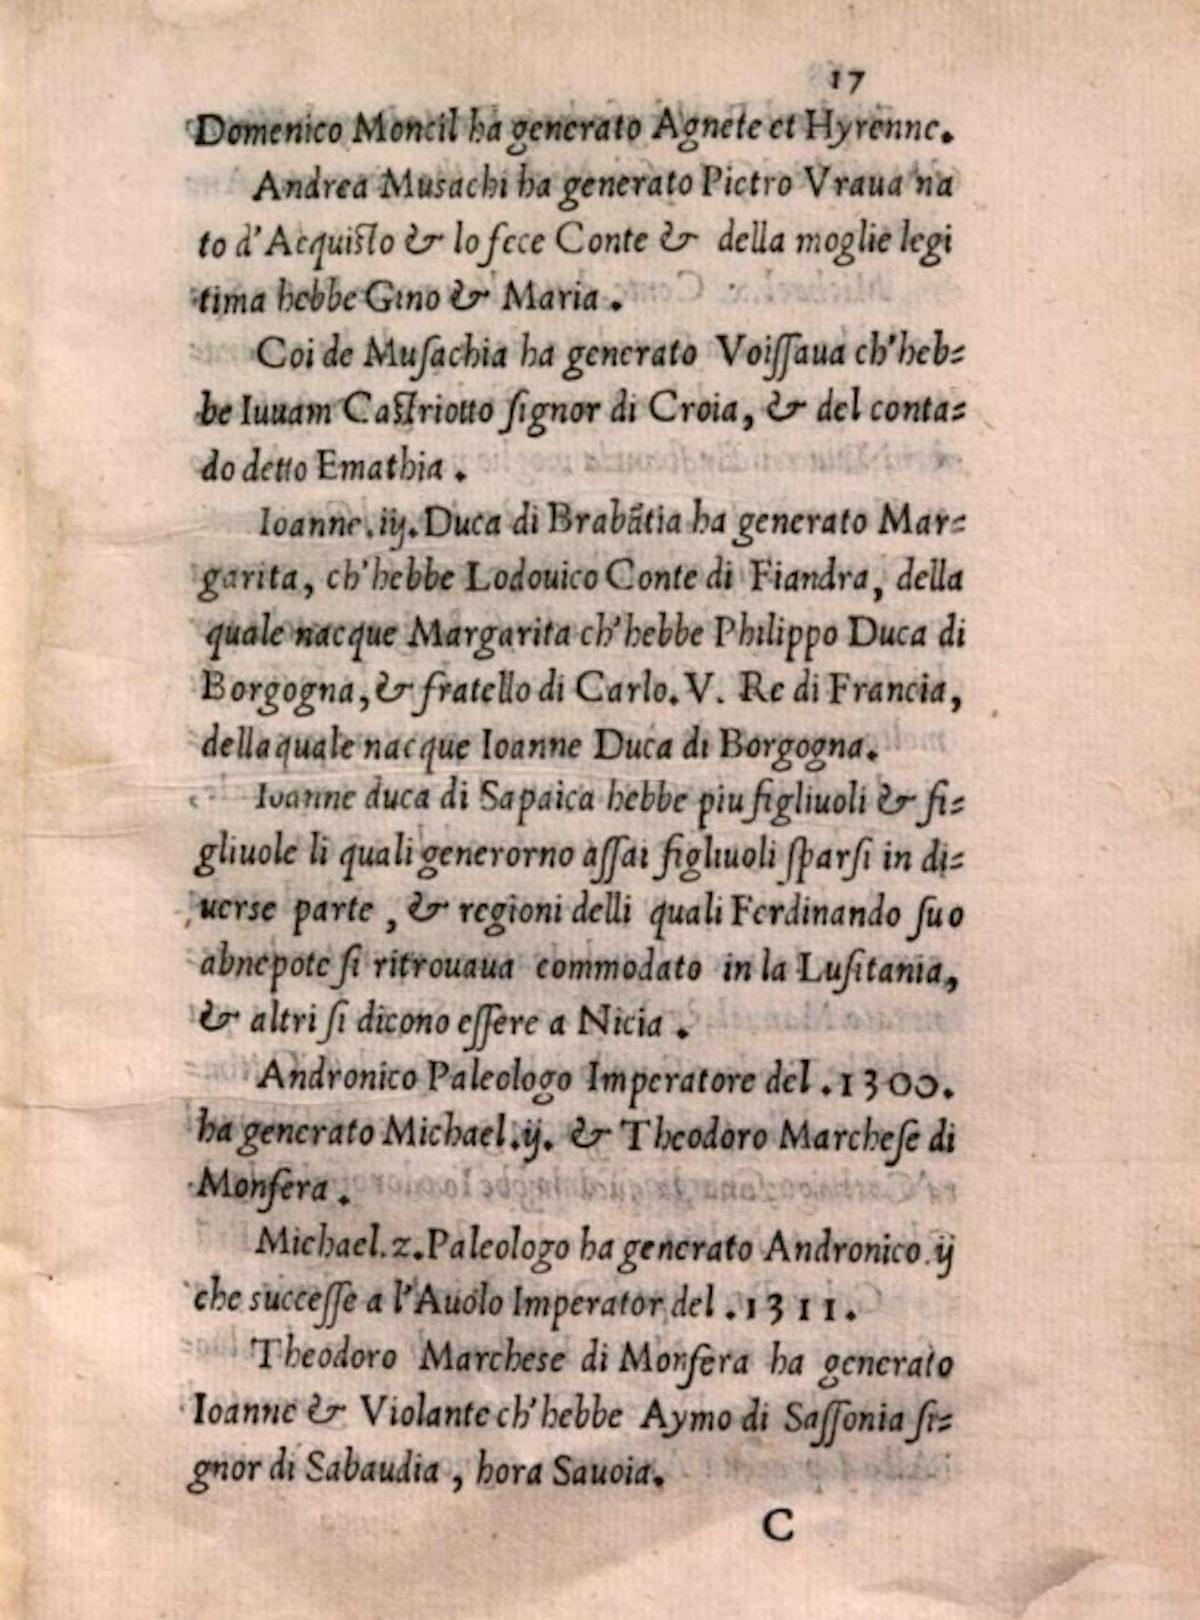 17
Domenico Moncil ha generato Agnete et Hyrenne.
Andrea Musachi ha generato Pietro Vraua na
to d'Acquisto & lo fece Conte & della moglie legi
tima hebbe Gino & Maria.
Coi de Muſachia ha generato Voiſſaua ch'heb=
be Iuuam Caſtriotto ſignor di Croia, & del conta=
do detto Emathia.
Ioanne.iij.Duca di Brabātia ha generato Mar=
garita, ch'hebbe Lodouico Conte di Fiandra, della
quale nacque Margarita ch'hebbe Philippo Duca di
Borgogna, & fratello di Carlo.V. Re di Francia,
della quale nacque Ioanne Duca di Borgogna.
Ioanne duca di Sapaica hebbe piu figliuoli & fi=
gliuole li quali generorno aſſai figliuoli ſparſi in di=
uerse parte, & regioni delli quali Ferdinando ſuo
abnepote ſi ritrouaua commodato in la Luſitania,
& altri ſi dicono eſſere a Nicia.
Andronico Paleologo Imperatore del .1300.
ha generato Michael.ij. & Theodoro Marcheſe di
Monfera.
Michael.2.Paleologo ha generato Andronico.ij
che succeſſe a l'Auolo Imperator del .1311.
Theodoro Marchese di Monfera ha generato
Ioanne & Violante ch'hebbe Aymo di Saſſonia ſi=
gnor di Sabaudia, hora Sauoia.
C